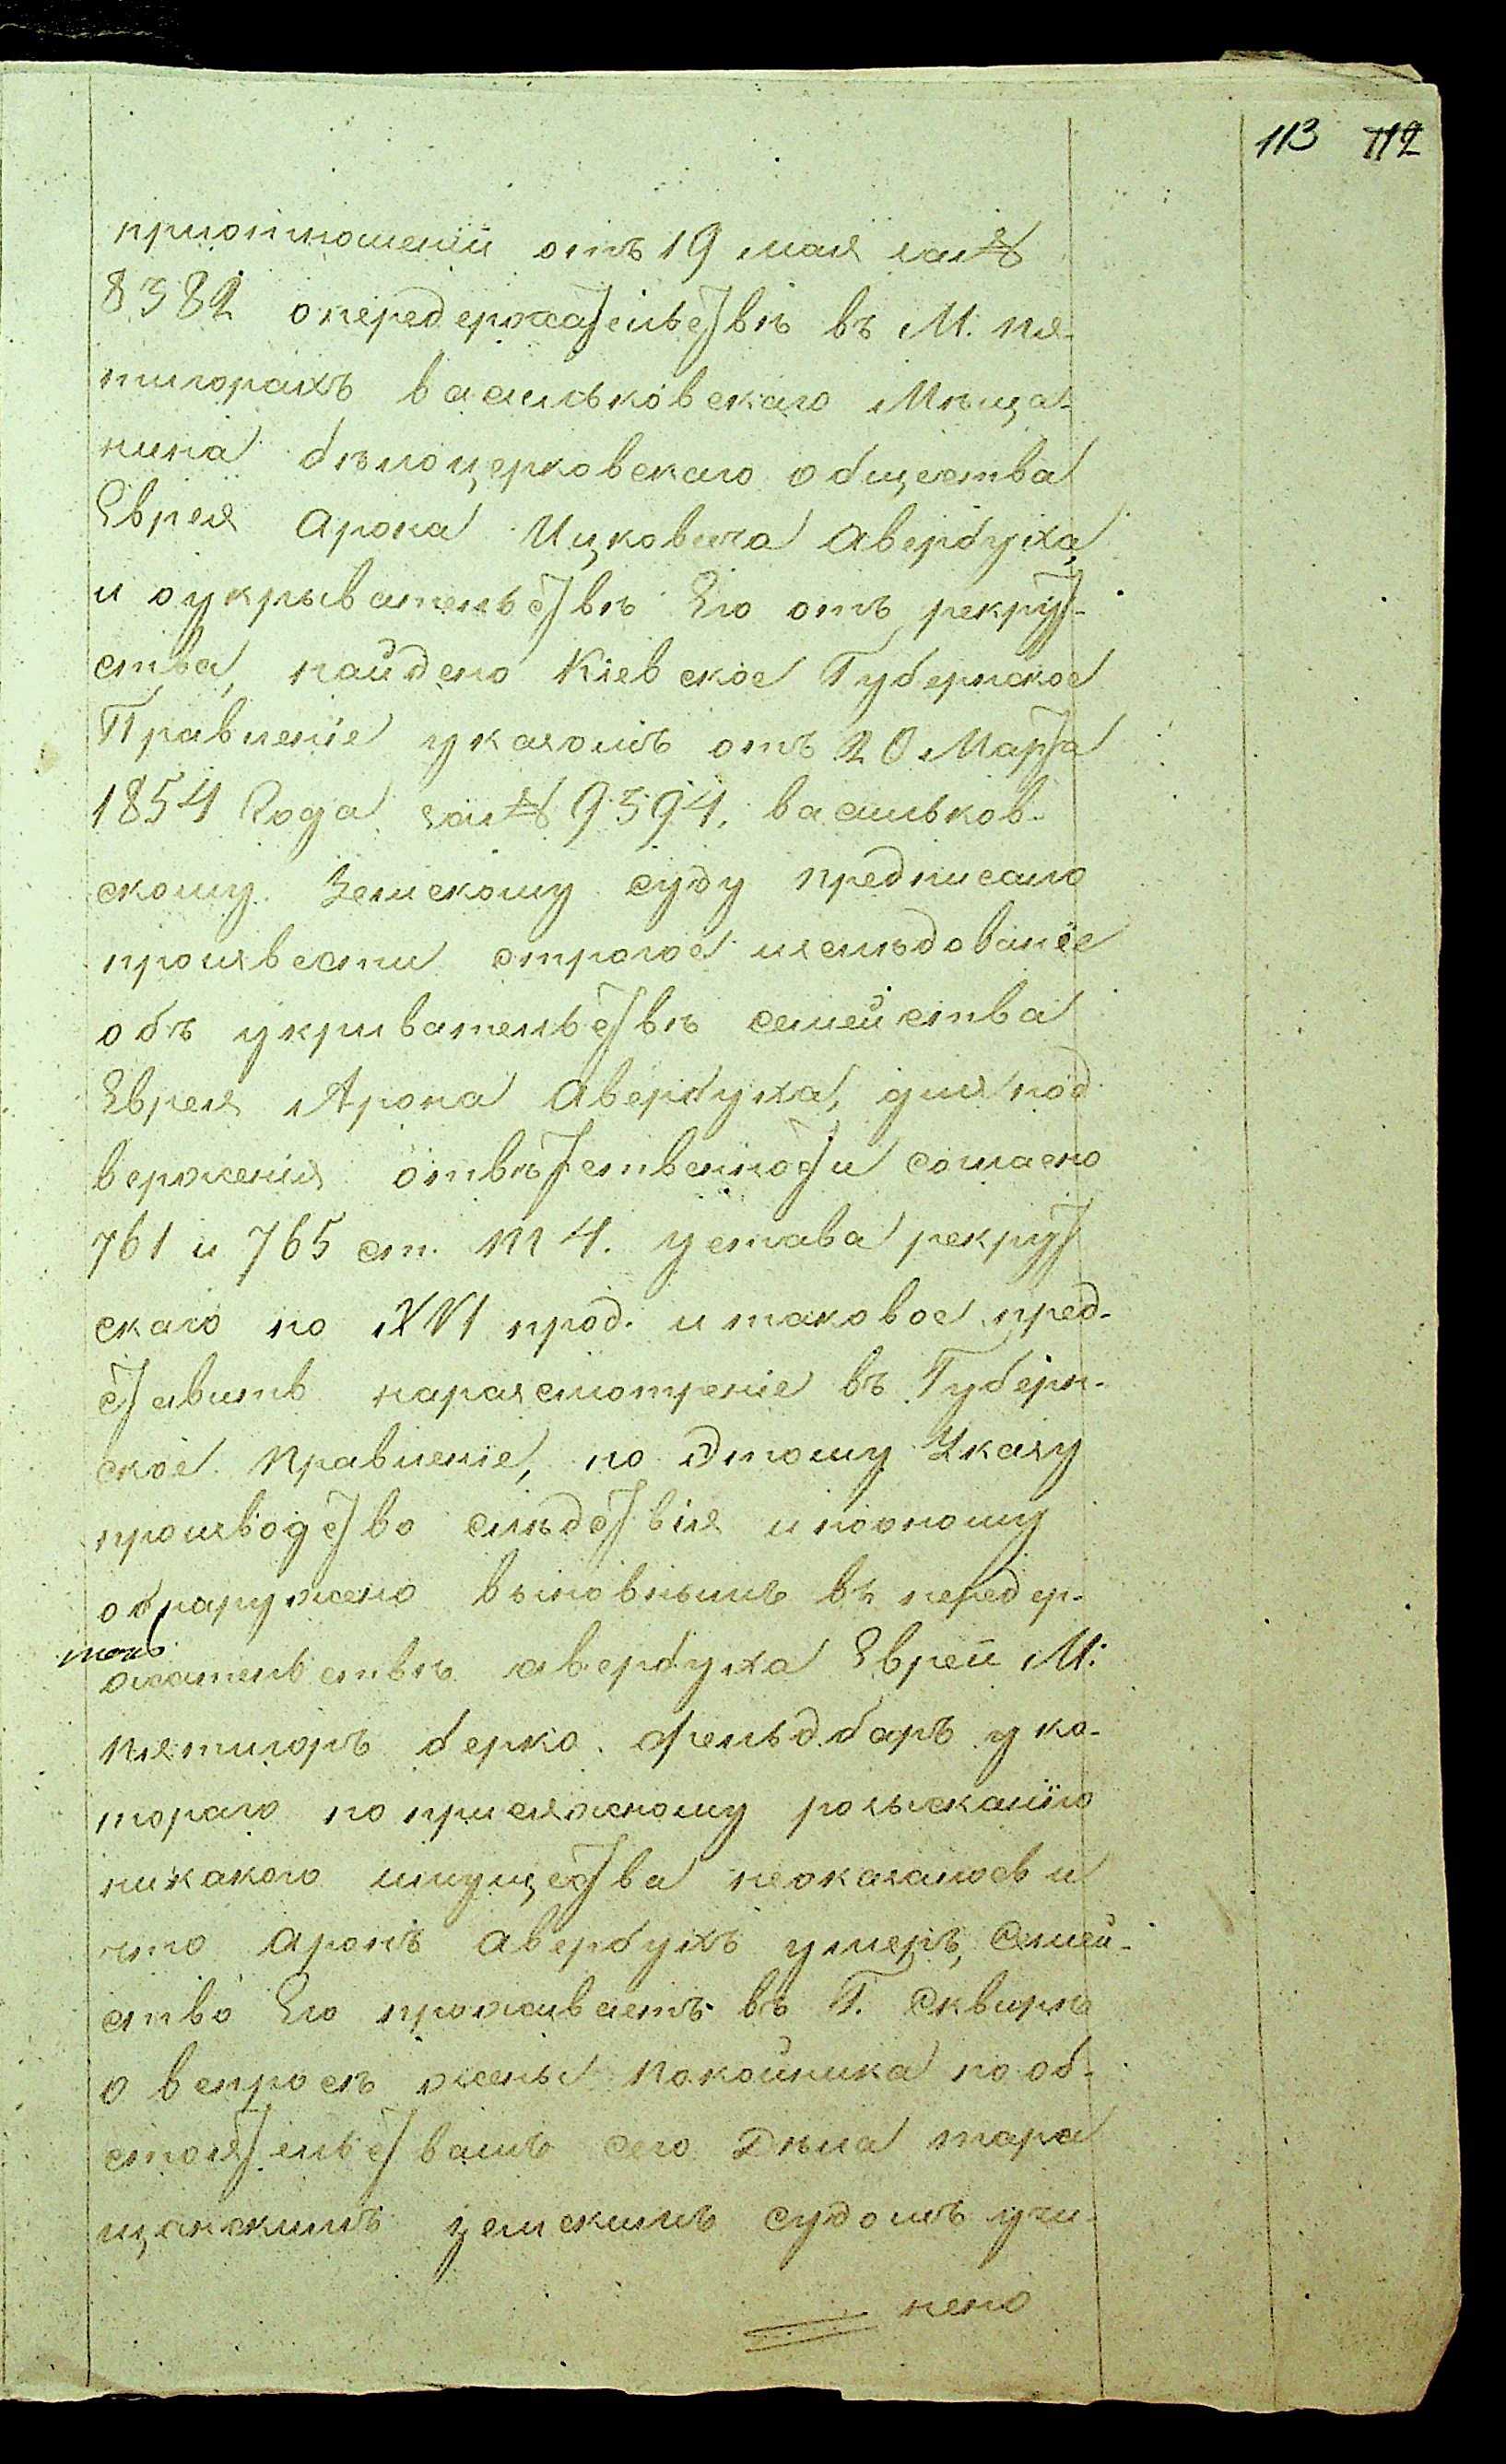 113 112
приотношеніи отъ 19 мая за №
8382 опередержательствѣ въ М. пя-
тигорахъ васильковскаго Мѣща-
нина бѣлоцерковскаго общества
Еврея Арона Ицковича Авербуха,
и оукрывательствѣ Его отъ рекрут-
ства, найдено Кіевское Губернское
Правленіе указомъ отъ 20 Марта
1854 Года за № 9594, васильков-
скому Земскому суду предписало
произвести строгое изслѣдованіе
объ укривательствѣ семейства
Еврея Арона Авербуха, для под
верженія отвѣтственности согласно
761 и 765 ст. т 4. устава рекрут
скаго по XVI прод. и таковое пред-
ставить наразсмотреніе въ Губерн-
ское правленіе, по Этому Указу
производство слѣдствія и поономy
обнаружено виновнымъ въ передер-
жательствѣ авербуха Еврей М:
пятигоръ берко Фельдбаръ у ко-
тораго по присяжному розысканію
никакого имущества неоказалось и
что Аронъ Авербухъ умеръ, Семей-
ство Его проживаетъ въ Г. Сквирѣ
о вспросѣ жены покойника по об-
стоятельствамъ сего Дѣла тара
щанскимъ земскимъ судомъ учи-
нено